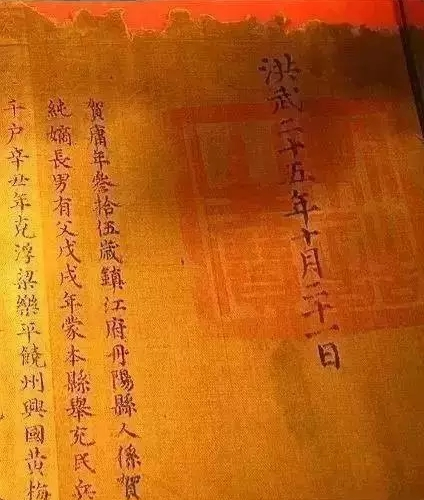 洪武二十五年十月二十一日
賀庸年叄拾伍歲鎮江府丹陽縣人係賀
純嫡長男有父戊戌年蒙本縣舉充民兵
千户辛丑年克浮梁樂平饒州興國黄梅